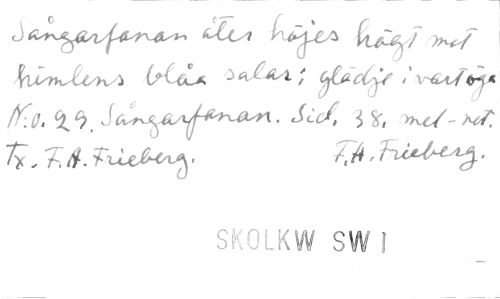 Sångarfanan åter höjes högt mot
himlens blåa salar; glädje i vart öga
N:o. 29. Sångarfanan. Sid. 38. mel-not.
Tx. F.A. Frieberg. F.A. Frieberg.
SKOLKW SW 1